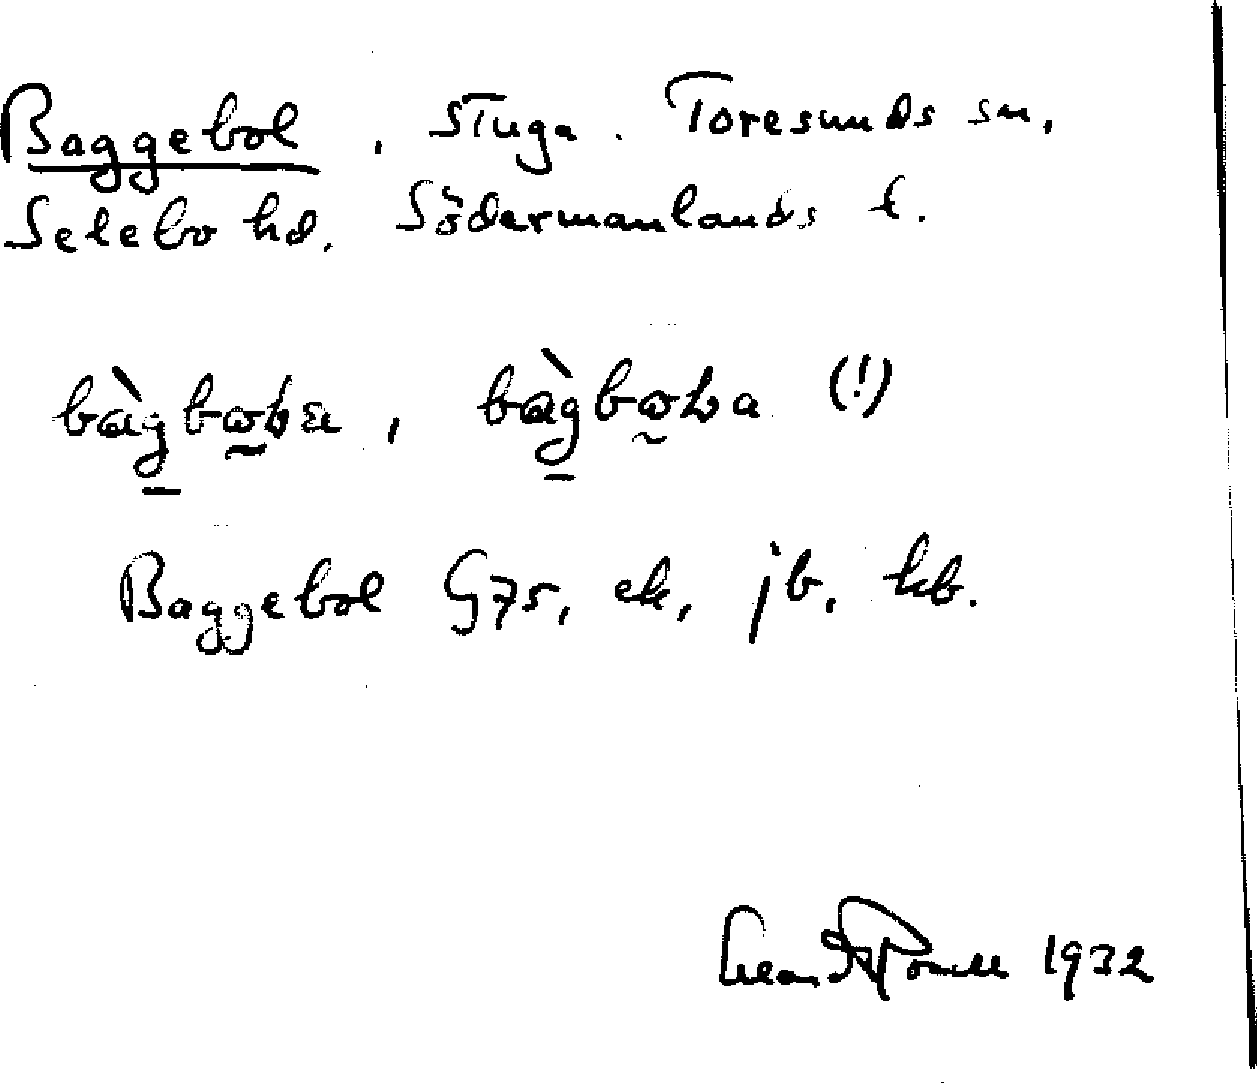 Baggebol, stuga. Toresunds sn,
Selebo hd. Södermanlands l.
(!)
Baggebol G75, ek, jb, kb.
1932